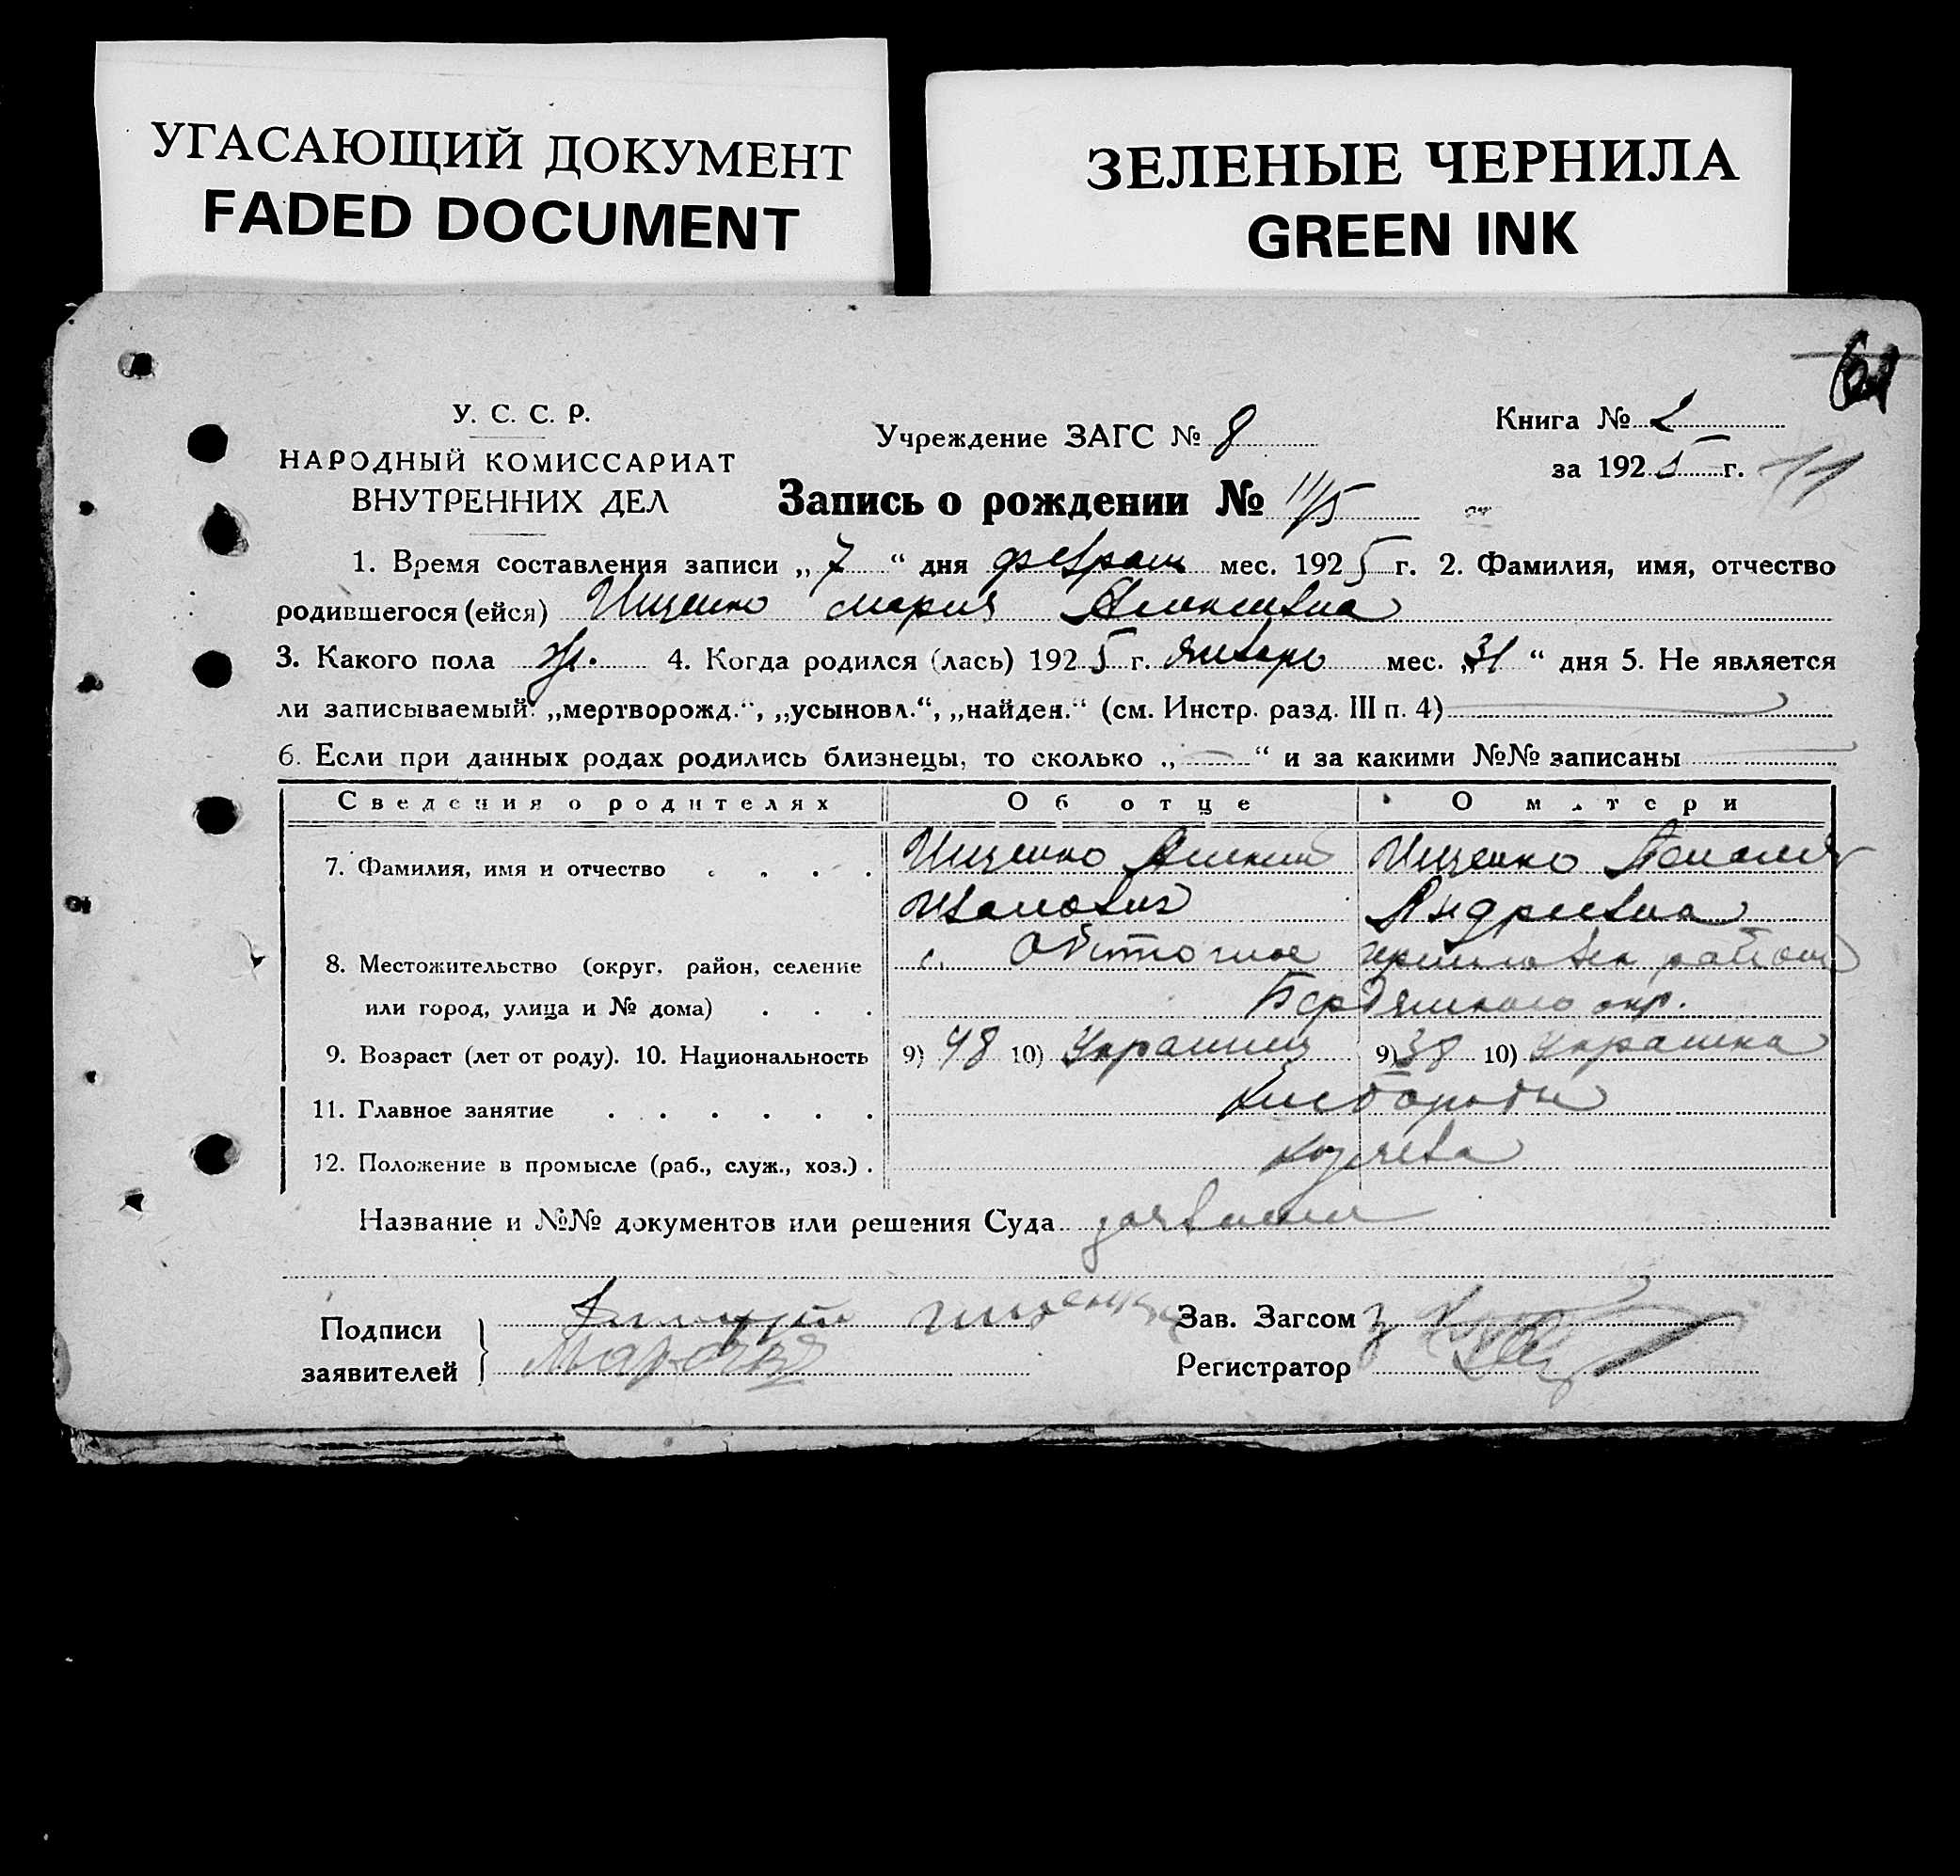 УГАСАЮЩИЙ ДОКУМЕНТ
FADED DOCUMENT
ЗЕЛЕНЫЕ ЧЕРНИЛА
GREEN INK
61
У. С. С. Р.
НАРОДНЫЙ КОМИССАРИАТ
ВНУТРЕННИХ ДЕЛ
Учреждение ЗАГС № 8
Книга № 2
за 1925 г. 11
Запись о рождении № 11/5
1. Время составления записи „7“ дня февраля мес. 1925 г. 2. Фамилия, имя, отчество
родившегося (ейся) Ищенко Мария Алексеевна
3. Какого пола ж. 4. Когда родился (лась) 1925 г. январь мес. „31“ дня 5. Не является
ли записываемый: „мертворожд.“, „усыновл.“, „найден.“ (см. Инстр. разд. III п. 4)
6. Если при данных родах родились близнецы, то сколько „—“ и за какими №№ записаны
Сведения о родителях Об отце О матери
7. Фамилия, имя и отчество . . . . Ищенко Алексей Ищенко
Иванович Андреевна
8. Местожительство (округ, район, селение с. Обиточное района
или город, улица и № дома) . . . Бердянского окр.
9. Возраст (лет от роду). 10. Национальность 9) 48 10) Украинец 9) 38 10) Украинка
11. Главное занятие . . . . . . Хлебороб
12. Положение в промысле (раб., служ., хоз.) .
Название и №№ документов или решения Суда
Подписи
заявителей
Ищенко
Зав. Загсом
Регистратор